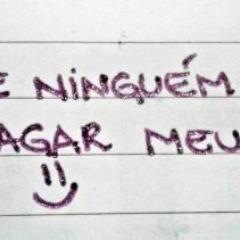 E NINGUÉM
AGAR MEU